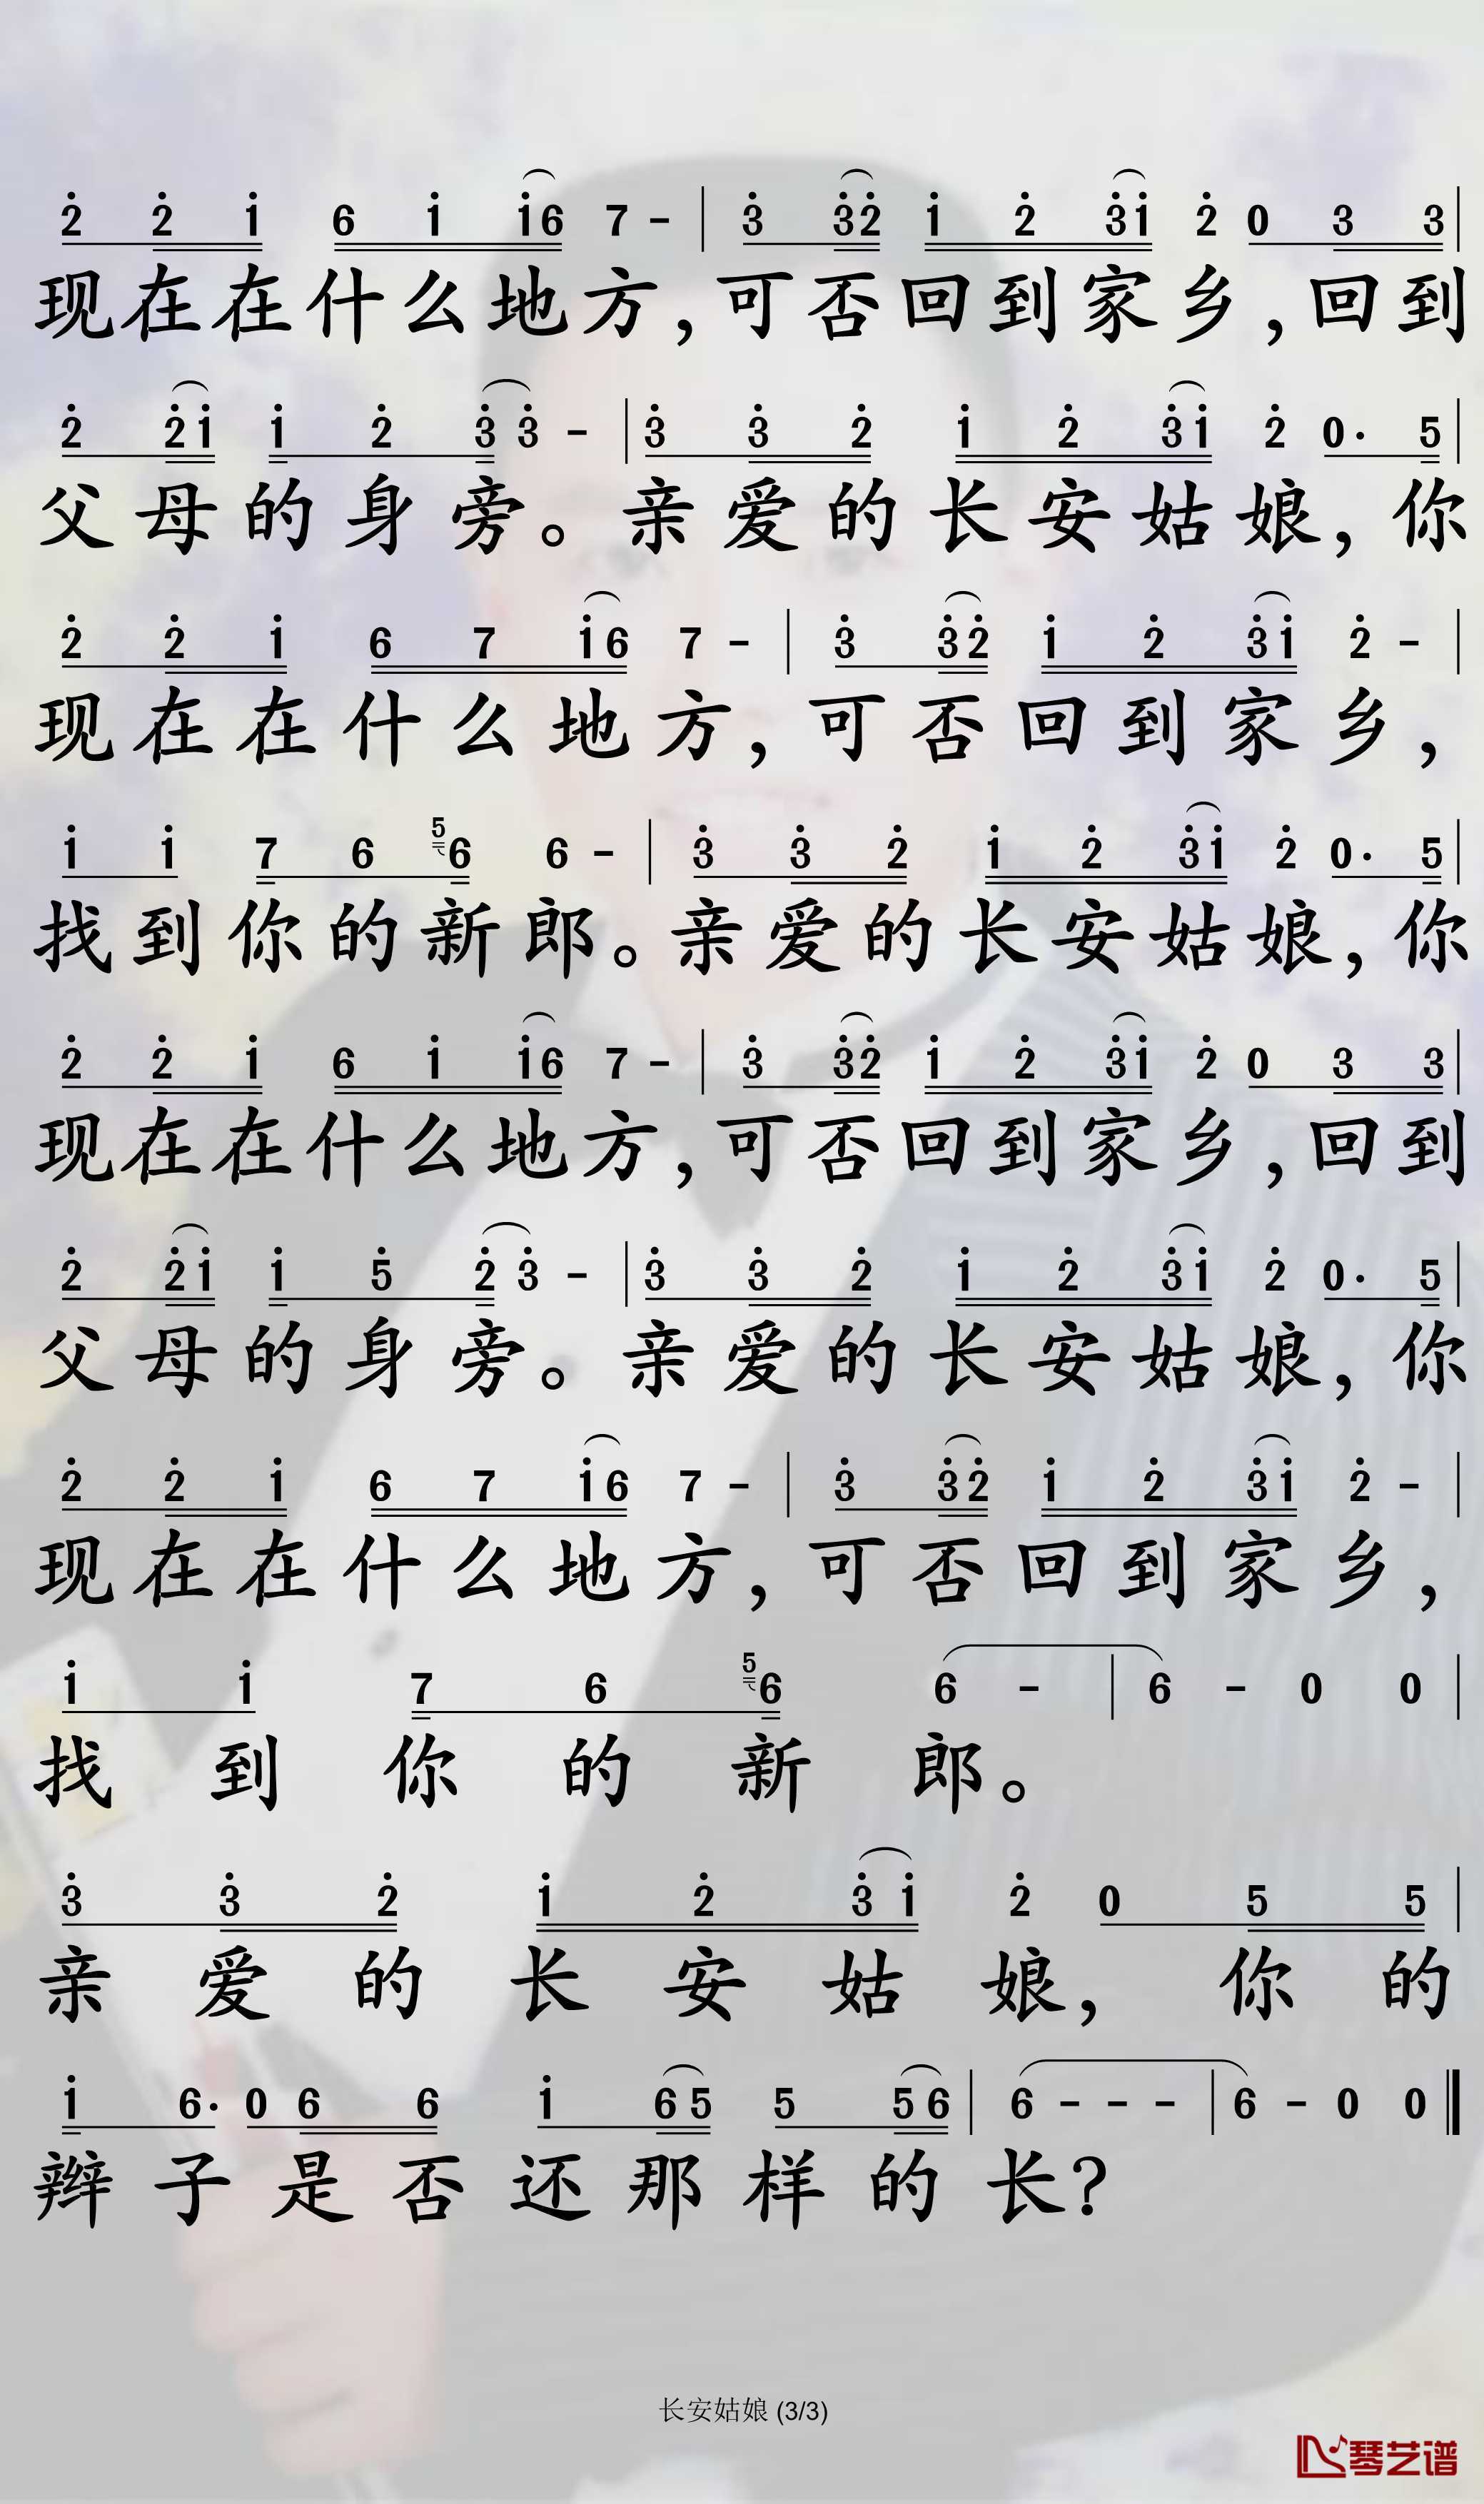 2̇ 2̇ 1̇ 6 1̇ 1̇ 6 7 - | 3̇ 3̇ 2̇ 1̇ 2̇ 3̇ 1̇ 2̇ 0 3 3 |
现在在什么地方，可否回到家乡，回到
2̇ 2̇ 1̇ 1̇ 2̇ 3̇ 3̇ - | 3̇ 3̇ 2̇ 1̇ 2̇ 3̇ 1̇ 2̇ 0· 5 |
父母的身旁。亲爱的长安姑娘，你
2̇ 2̇ 1̇ 6 7 1̇ 6 7 - | 3̇ 3̇ 2̇ 1̇ 2̇ 3̇ 1̇ 2̇ - |
现在在什么地方，可否回到家乡，
1̇ 1̇ 7 6 5 6 6 - | 3̇ 3̇ 2̇ 1̇ 2̇ 3̇ 1̇ 2̇ 0· 5 |
找到你的新郎。亲爱的长安姑娘，你
2̇ 2̇ 1̇ 6 1̇ 1̇ 6 7 - | 3̇ 3̇ 2̇ 1̇ 2̇ 3̇ 1̇ 2̇ 0 3 3 |
现在在什么地方，可否回到家乡，回到
2̇ 2̇ 1̇ 1̇ 5̇ 2̇ 3̇ - | 3̇ 3̇ 2̇ 1̇ 2̇ 3̇ 1̇ 2̇ 0· 5 |
父母的身旁。亲爱的长安姑娘，你
2̇ 2̇ 1̇ 6 7 1̇ 6 7 - | 3̇ 3̇ 2̇ 1̇ 2̇ 3̇ 1̇ 2̇ - |
现在在什么地方，可否回到家乡，
1̇ 1̇ 7 6 5 6 6 - | 6 - 0 0 |
找到你的新郎。
3̇ 3̇ 2̇ 1̇ 2̇ 3̇ 1̇ 2̇ 0 5 5 |
亲爱的长安姑娘，你的
1̇ 6· 0 6 6 1̇ 6 5 5 5 6 | 6 - - - | 6 - 0 0 ‖
辫子是否还那样的长？
长安姑娘 (3/3)
琴艺谱